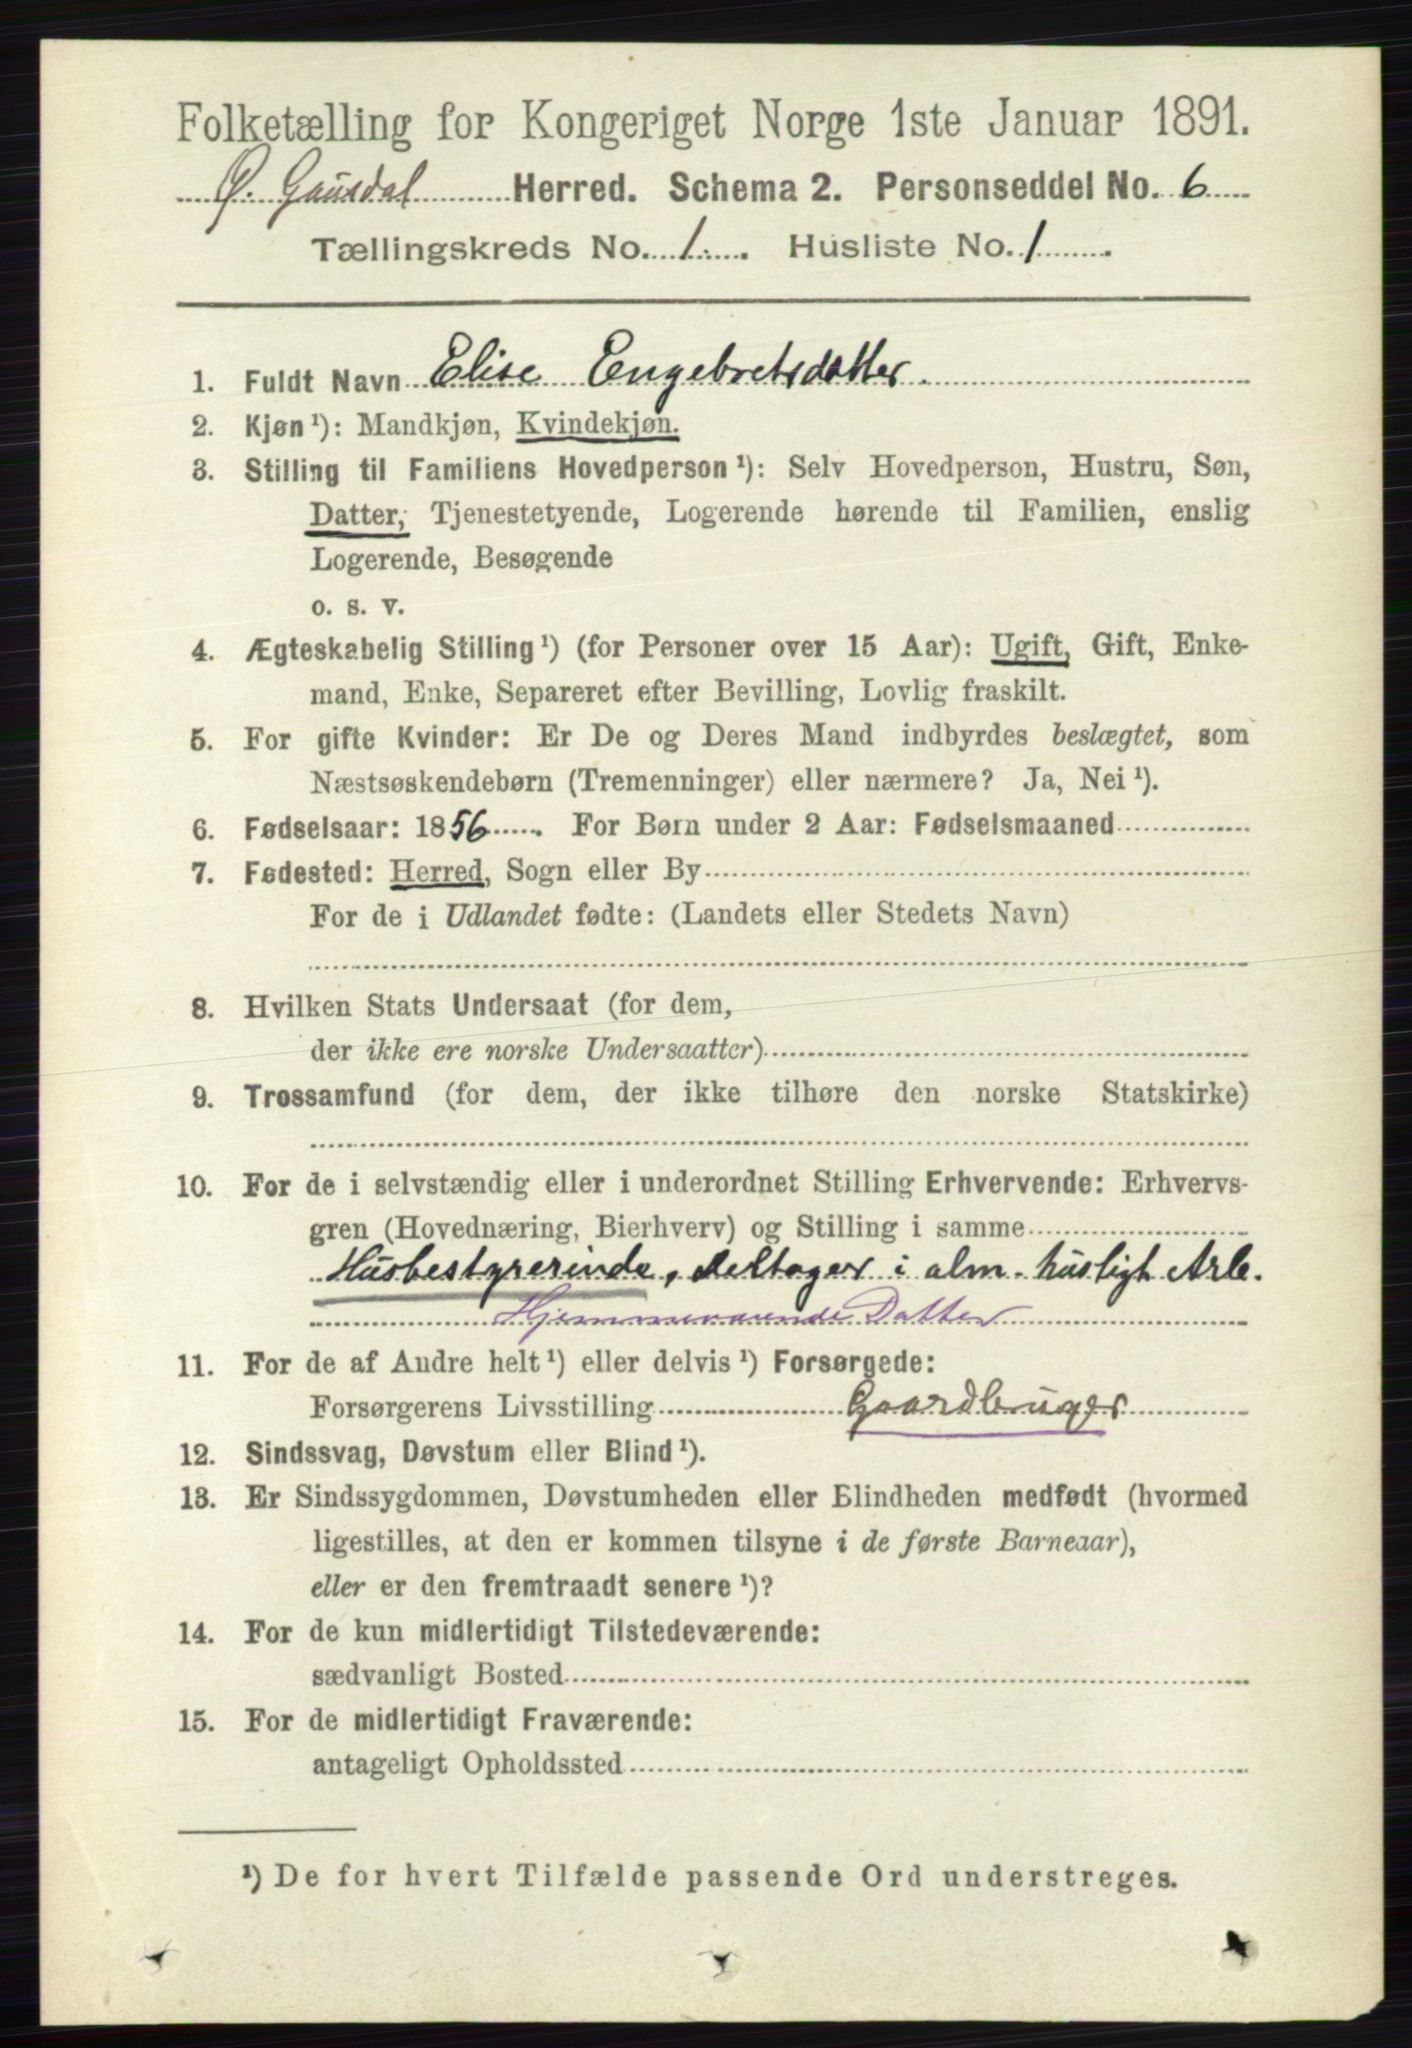 Folketælling for Kongeriget Norge 1ste Januar 1891.
Ø. Gausdal Herred. Schema 2. Personseddel No. 6
Tællingskreds No. 1. Husliste No. 1
1. Fuldt Navn Elise Engebretsdatter.
2. Kjøn ¹): Mandkjøn, Kvindekjøn.
3. Stilling til Familiens Hovedperson ¹): Selv Hovedperson, Hustru, Søn,
Datter, Tjenestetyende, Logerende hørende til Familien, enslig
Logerende, Besøgende
o. s. v.
4. Ægteskabelig Stilling ¹) (for Personer over 15 Aar): Ugift, Gift, Enke-
mand, Enke, Separeret efter Bevilling, Lovlig fraskilt.
5. For gifte Kvinder: Er De og Deres Mand indbyrdes beslægtet, som
Næstsøskendebørn (Tremenninger) eller nærmere? Ja, Nei ¹).
6. Fødselsaar: 1856 For Børn under 2 Aar: Fødselsmaaned
7. Fødested: Herred, Sogn eller By
For de i Udlandet fødte: (Landets eller Stedets Navn)
8. Hvilken Stats Undersaat (for dem,
der ikke ere norske Undersaatter)
9. Trossamfund (for dem, der ikke tilhøre den norske Statskirke)
10. For de i selvstændig eller i underordnet Stilling Erhvervende: Erhvervs-
gren (Hovednæring, Bierhverv) og Stilling i samme
Husbestyrerinde, deltager i alm. husligt Arb.
Hjemmeværende Datter
11. For de af Andre helt ¹) eller delvis ¹) Forsørgede:
Forsørgerens Livsstilling Gaardbruger
12. Sindssvag, Døvstum eller Blind ¹).
13. Er Sindssygdommen, Døvstumheden eller Blindheden medfødt (hvormed
ligestilles, at den er kommen tilsyne i de første Barneaar),
eller er den fremtraadt senere ¹)?
14. For de kun midlertidigt Tilstedeværende:
sædvanligt Bosted
15. For de midlertidigt Fraværende:
antageligt Opholdssted
¹) De for hvert Tilfælde passende Ord understreges.